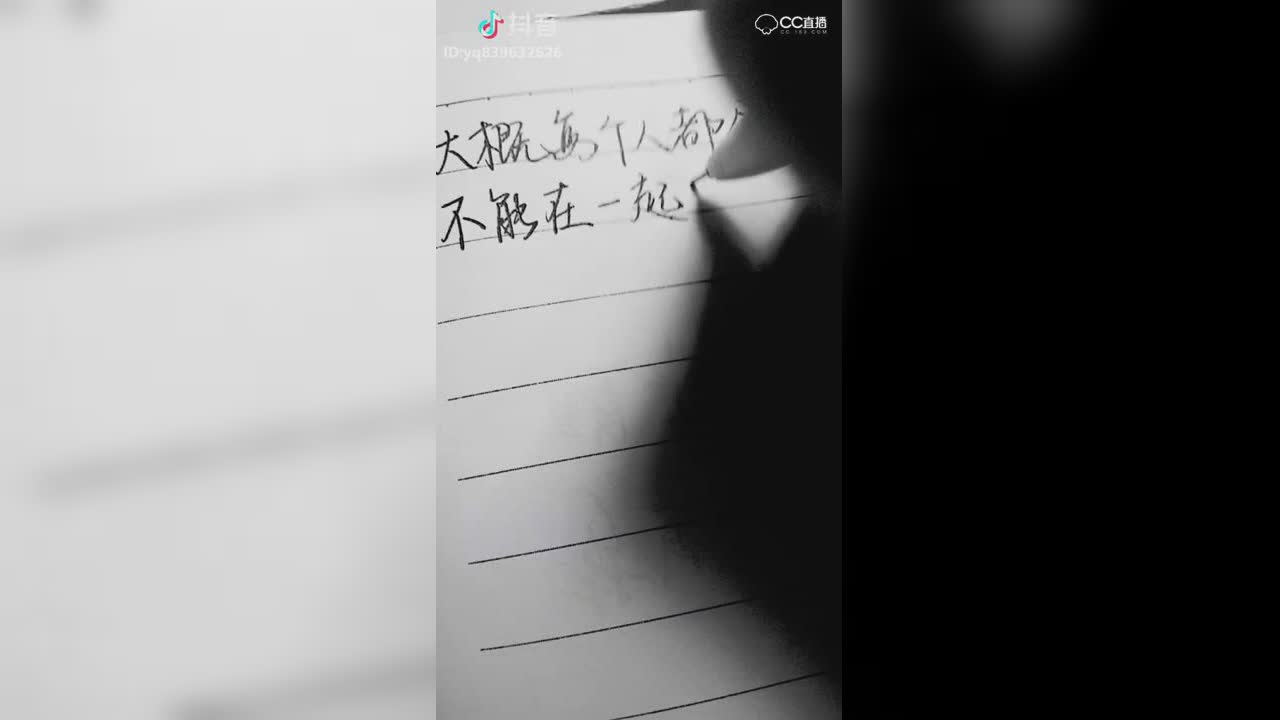 抖音
ID:yq839632626
CC直播
CC.163.COM
大概每个人都
不能在一起